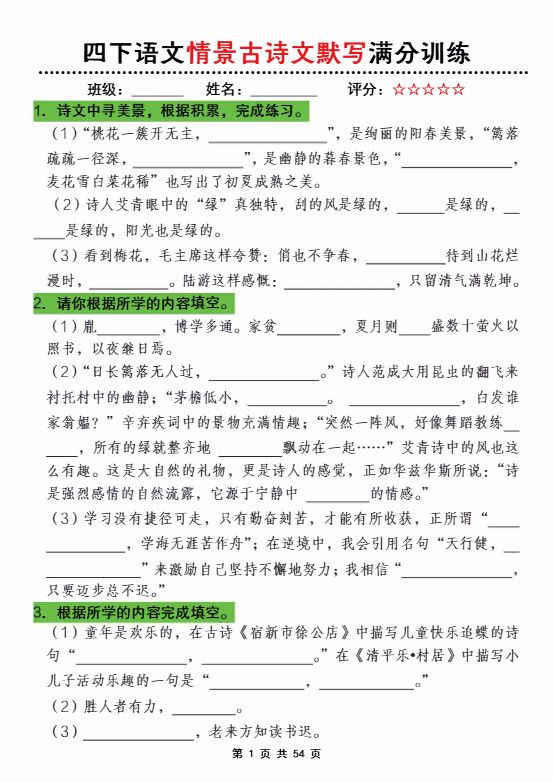 四下语文情景古诗文默写满分训练
班级：______ 姓名：________ 评分：☆☆☆☆☆
1. 诗文中寻美景，根据积累，完成练习。
（1）“桃花一簇开无主，______________”，是绚丽的阳春美景，“篱落
疏疏一径深，______________”，是幽静的暮春景色，“______________，
麦花雪白菜花稀”也写出了初夏成熟之美。
（2）诗人艾青眼中的“绿”真独特，刮的风是绿的，______是绿的，__
____是绿的，阳光也是绿的。
（3）看到梅花，毛主席这样夸赞：俏也不争春，__________待到山花烂
漫时，__________。陆游这样感慨：______________，只留清气满乾坤。
2. 请你根据所学的内容填空。
（1）胤________，博学多通。家贫________，夏月则____盛数十萤火以
照书，以夜继日焉。
（2）“日长篱落无人过，______________。”诗人范成大用昆虫的翻飞来
衬托村中的幽静；“茅檐低小，__________。______________，白发谁
家翁媪？”辛弃疾词中的景物充满情趣；“突然一阵风，好像舞蹈教练__
____，所有的绿就整齐地 ________飘动在一起……”艾青诗中的风也这
么有趣。这是大自然的礼物，更是诗人的感觉，正如华兹华斯所说：“诗
是强烈感情的自然流露，它源于宁静中 ________的情感。”
（3）学习没有捷径可走，只有勤奋刻苦，才能有所收获，正所谓“____
__________，学海无涯苦作舟”；在逆境中，我会引用名句“天行健，__
____________”来激励自己坚持不懈地努力；我相信“______________，
只要迈步总不迟。”
3. 根据所学的内容完成填空。
（1）童年是欢乐的，在古诗《宿新市徐公店》中描写儿童快乐追蝶的诗
句“______________，______________。”在《清平乐•村居》中描写小
儿子活动乐趣的一句是“____________，____________。”
（2）胜人者有力，________。
（3）______________，老来方知读书迟。
第 1 页 共 54 页